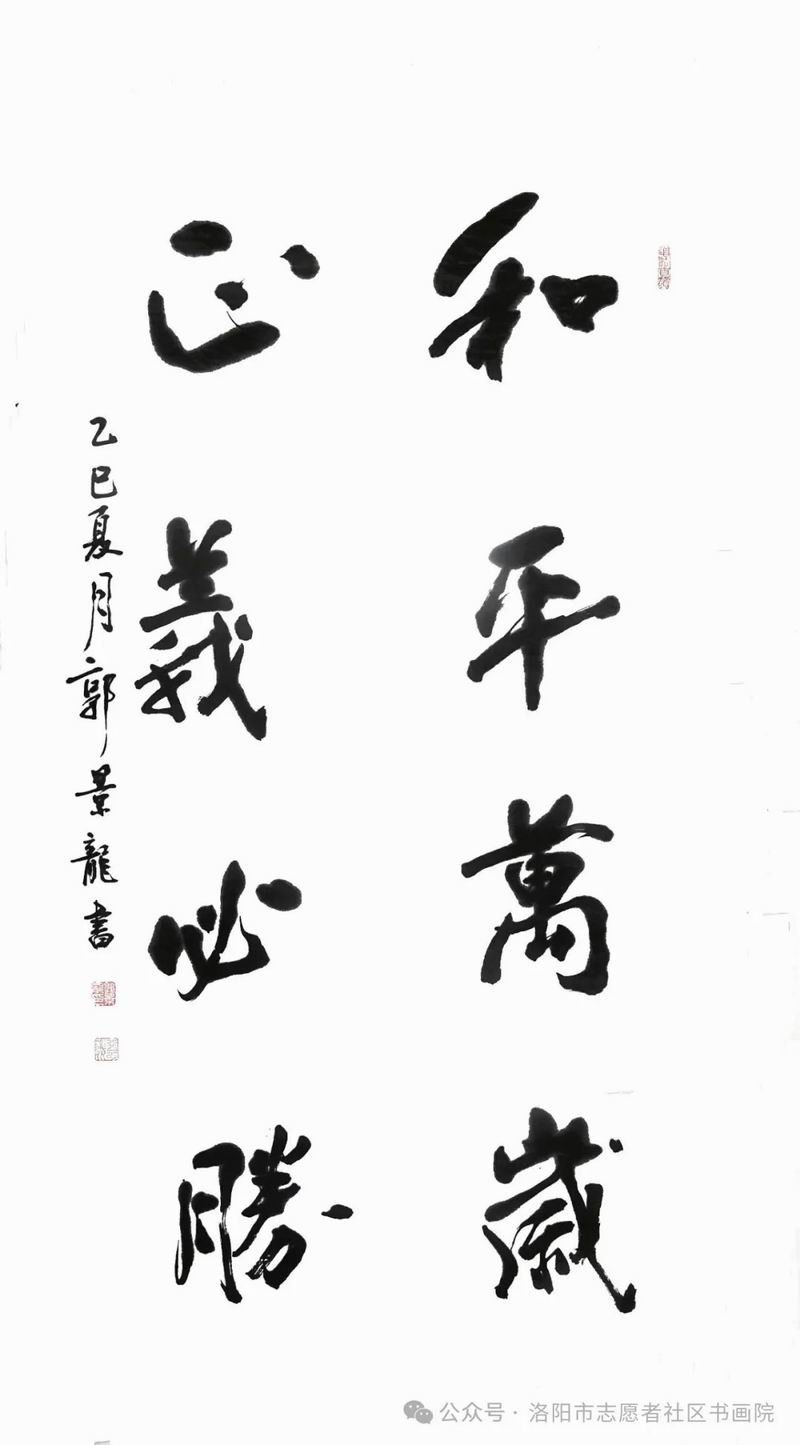 和平萬歲
正義必勝
乙巳夏月郭景龍書
公众号·洛阳市志愿者社区书画院